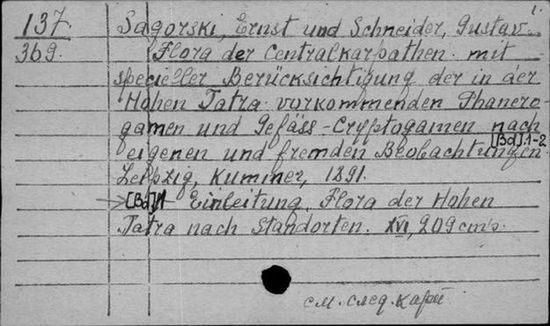 1.
137 Sagorski, Ernst und Schneider, Gustav.
369. Flora der Centralkarpathen mit
specieller Berücksichtigung der in der
Hohen Tatra vorkommenden Phanero-
gamen und Gefäss-Cryptogamen nach
[Bd].1-2
eigenen und fremden Beobachtungen.
Leipzig, Kummer, 1891.
[Bd]1 Einleitung. Flora der Hohen
Tatra nach Standorten. XVI, 209 cm's.
см. след. карт